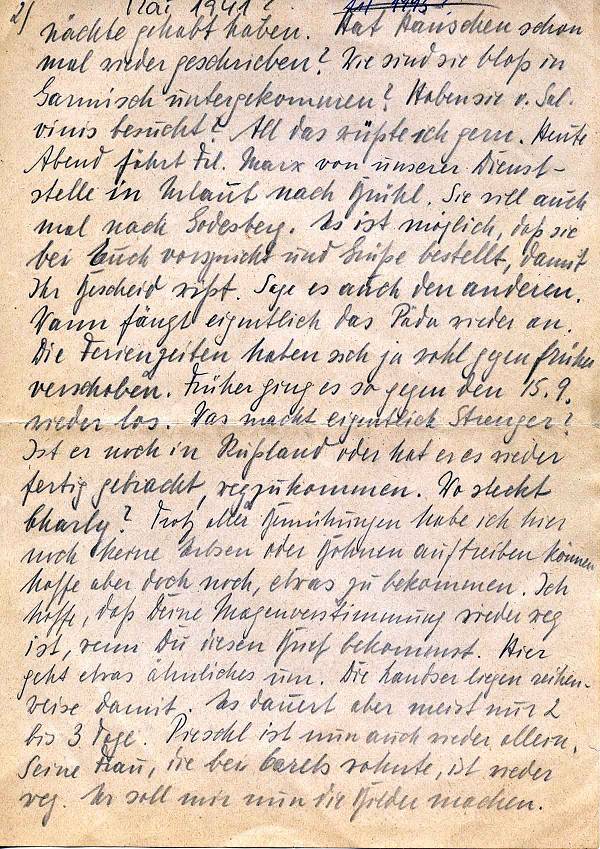 2/ Mai 1941?
nächte gehabt haben. Hat Hänschen schon
mal wieder geschrieben? Wie sind sie bloß in
Garmisch untergekommen? Haben sie v. Sal-
vinis besucht? All das wüßte ich gern. Heute
Abend fährt Frl. Marx von unserer Dienst-
stelle in Urlaub nach Brühl. Sie will auch
mal nach Godesberg. Es ist möglich, daß sie
bei Euch vorspricht und Grüße bestellt, damit
Ihr Bescheid wißt. Sage es auch den anderen.
Wann fängt eigentlich das Päda wieder an.
Die Ferienzeiten haben sich ja wohl gegen früher
verschoben. Früher ging es so gegen den 15.9.
wieder los. Was macht eigentlich Strenger?
Ist er noch in Rußland oder hat er es wieder
fertig gebracht, wegzukommen. Wo steckt
Charly? Trotz aller Bemühungen habe ich hier
noch keine Erbsen oder Bohnen auftreiben können
hoffe aber doch noch, etwas zu bekommen. Ich
hoffe, daß Deine Magenverstimmung wieder weg
ist, wenn Du diesen Brief bekommst. Hier
geht etwas ähnliches um. Die Landser liegen reihen-
weise damit. Es dauert aber meist nur 2
bis 3 Tage. Pieschl ist nun auch wieder allein.
Seine Frau, die bei Carels wohnte, ist wieder
weg. Er soll mir nun die Bilder machen.